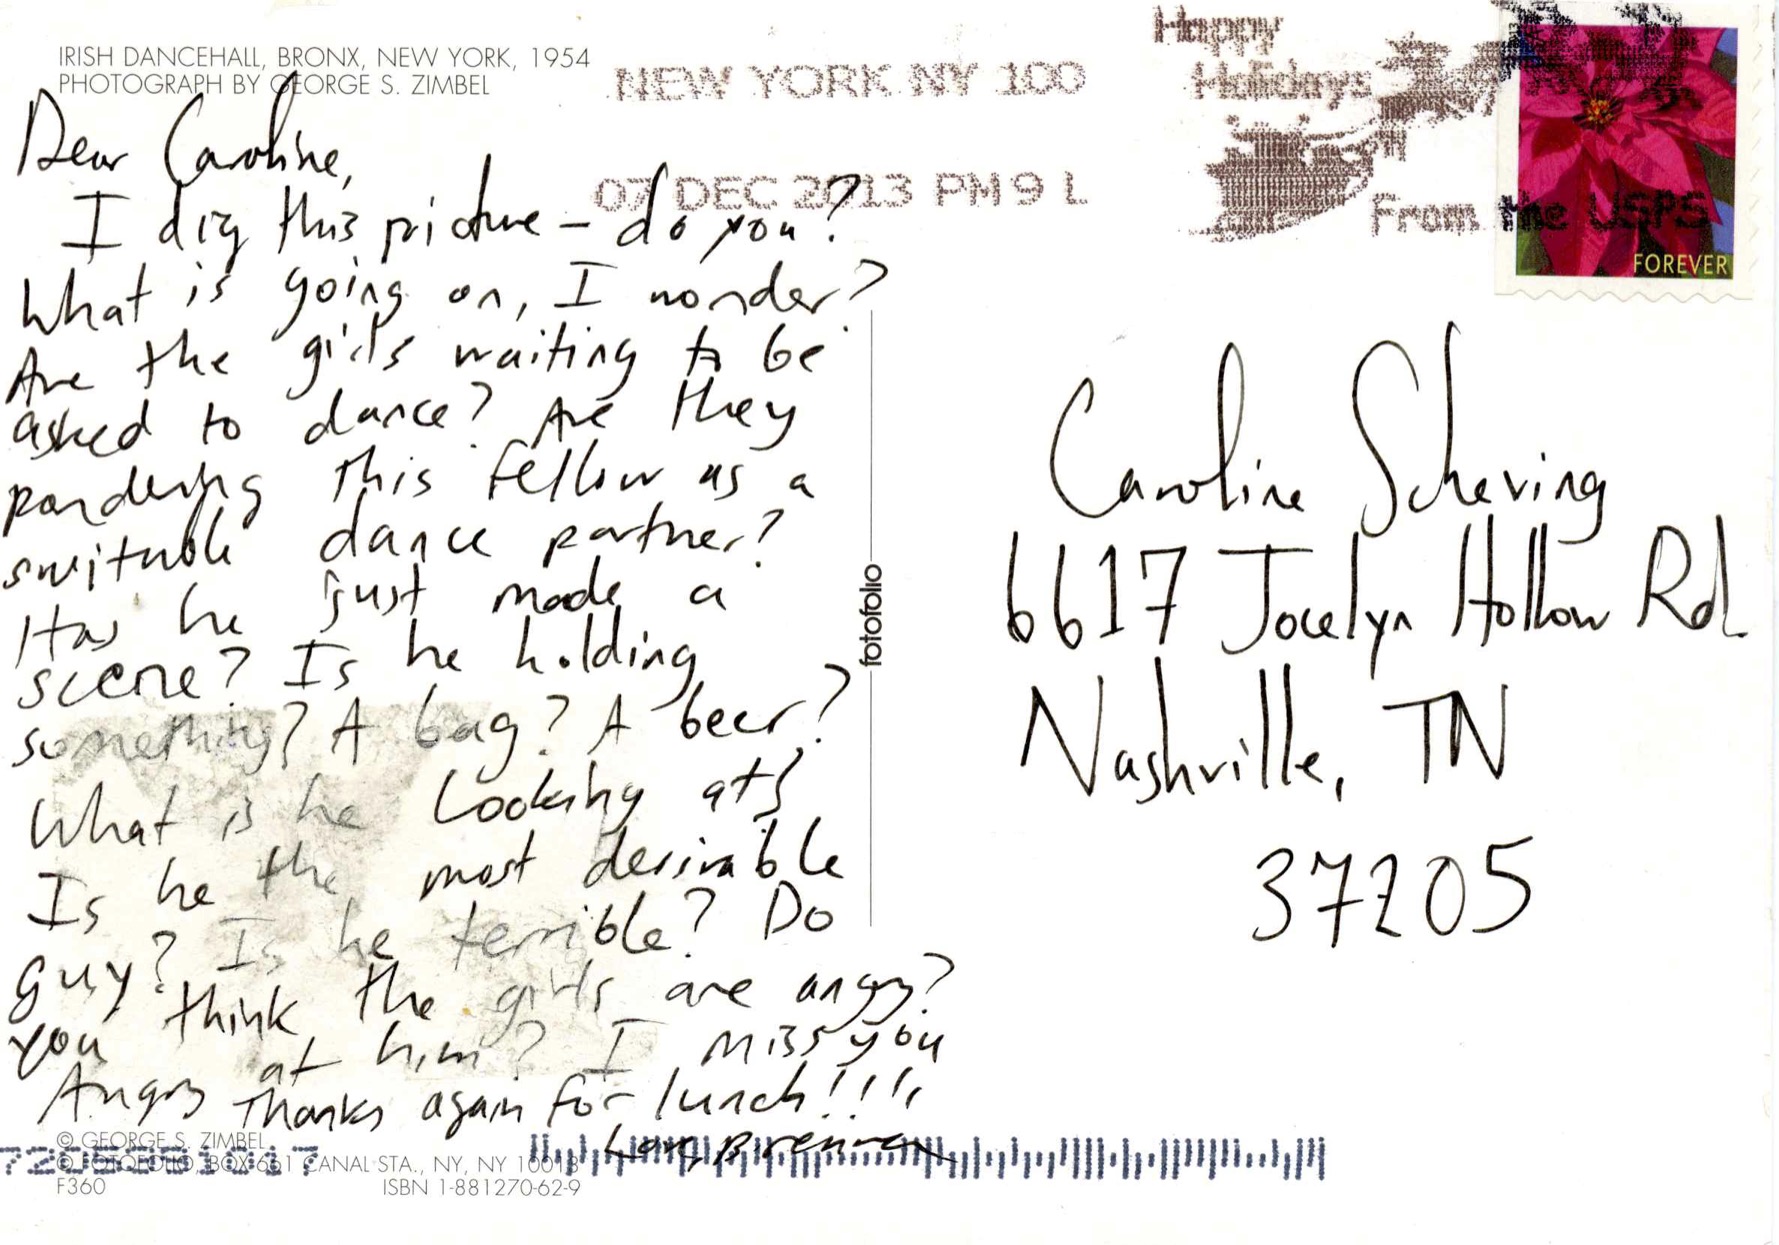 IRISH DANCEHALL, BRONX, NEW YORK, 1954
PHOTOGRAPH BY GEORGE S. ZIMBEL
NEW YORK NY 100
07 DEC 2013 PM 9 L
Happy
Holidays
From the USPS
FOREVER
Dear Caroline,
I dig this picture – do you?
What is going on, I wonder?
Are the girls waiting to be
asked to dance? Are they
pondering this fellow as a
suitable dance partner?
Has he just made a
scene? Is he holding
something? A bag? A beer?
What is he looking at?
Is he the most desirable
guy? Is he terrible? Do
you think the girls are angry?
Angry at him? I miss you
Thanks again for lunch!!!!
Love, Brennan
fotofolio
Caroline Scheving
6617 Jocelyn Hollow Rd.
Nashville, TN
37205
© GEORGE S. ZIMBEL
© FOTOFOLIO, BOX 661 CANAL STA., NY, NY 10013
F360 ISBN 1-881270-62-9